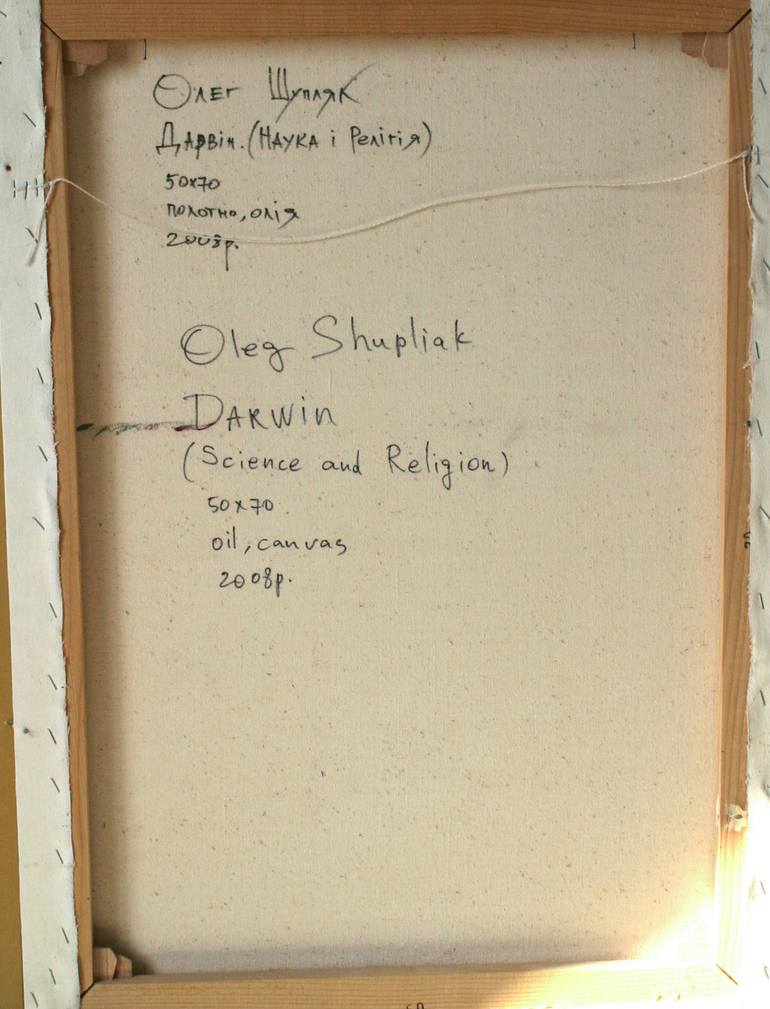 Олег Шупляк
Дарвін. (Наука і Релігія)
50x70
полотно, олія
2008р.
Oleg Shupliak
DARWin
(Science and Religion)
50x70
oil, canvas
2008р.
50